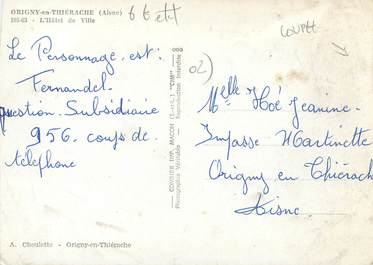 ORIGNY-en-THIÉRACHE (Aisne)
102-63 - L'Hôtel de Ville
COUPEE
02
Le Personnage est:
Fernandel.
question. Subsidiaire
956. coups de.
téléphone
COMBIER IMP. MACON (S.-et-L.) "CIM"
Photographie Véritable - Reproduction Interdite
Melle Hoé Jeanine.
Impasse Martinette
Origny en Thiérach
Aisne
A. Choulette - Origny-en-Thiérache